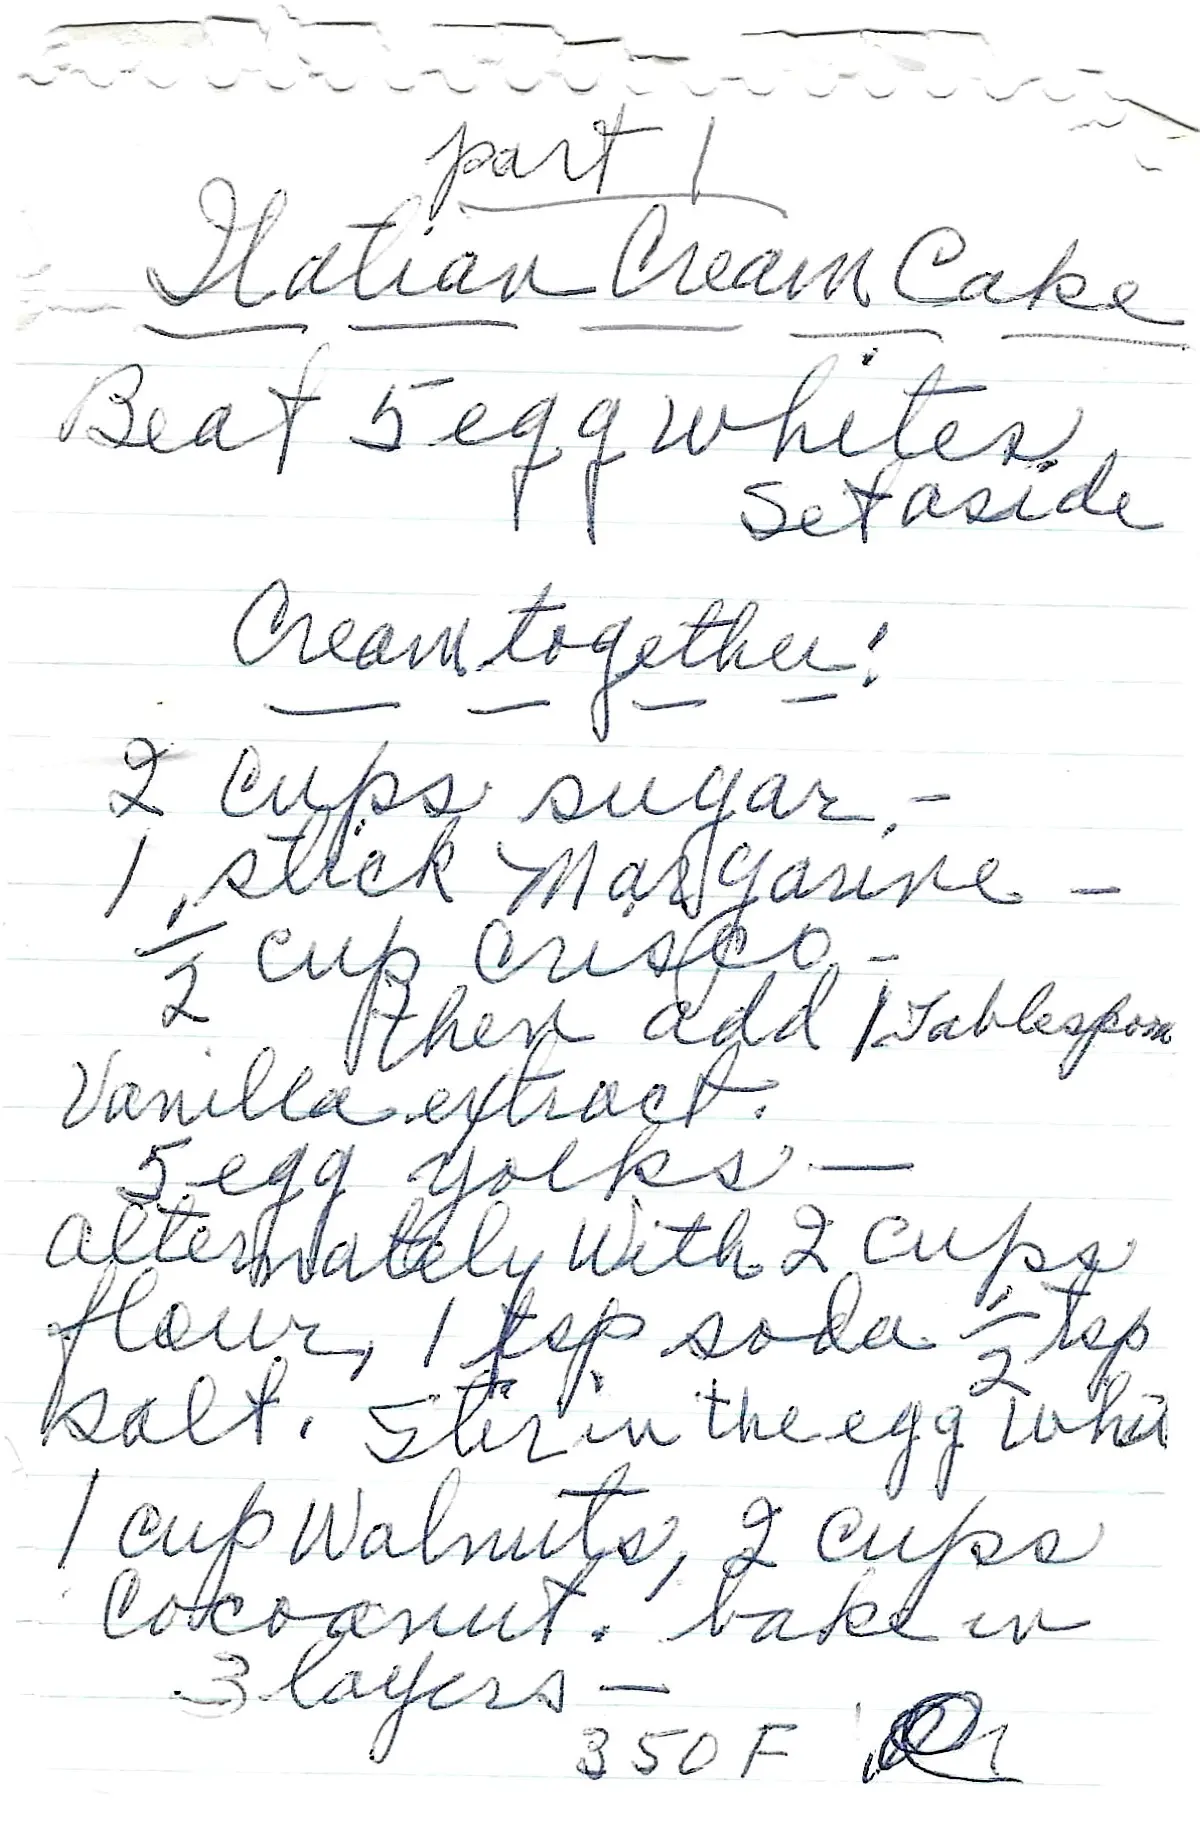 part 1
Italian Cream Cake
Beat 5 egg whites.
Set aside
Cream together:
2 cups sugar. -
1 stick Margarine -
1/2 cup Crisco -
then add 1 Tablespoon
Vanilla extract.
5 egg yolks —
alternately with 2 cups
flour, 1 tsp soda 1/2 tsp
salt. Stir in the egg whit
1 cup Walnuts, 2 cups
Cocoanut. bake in
3 layers —
350 F